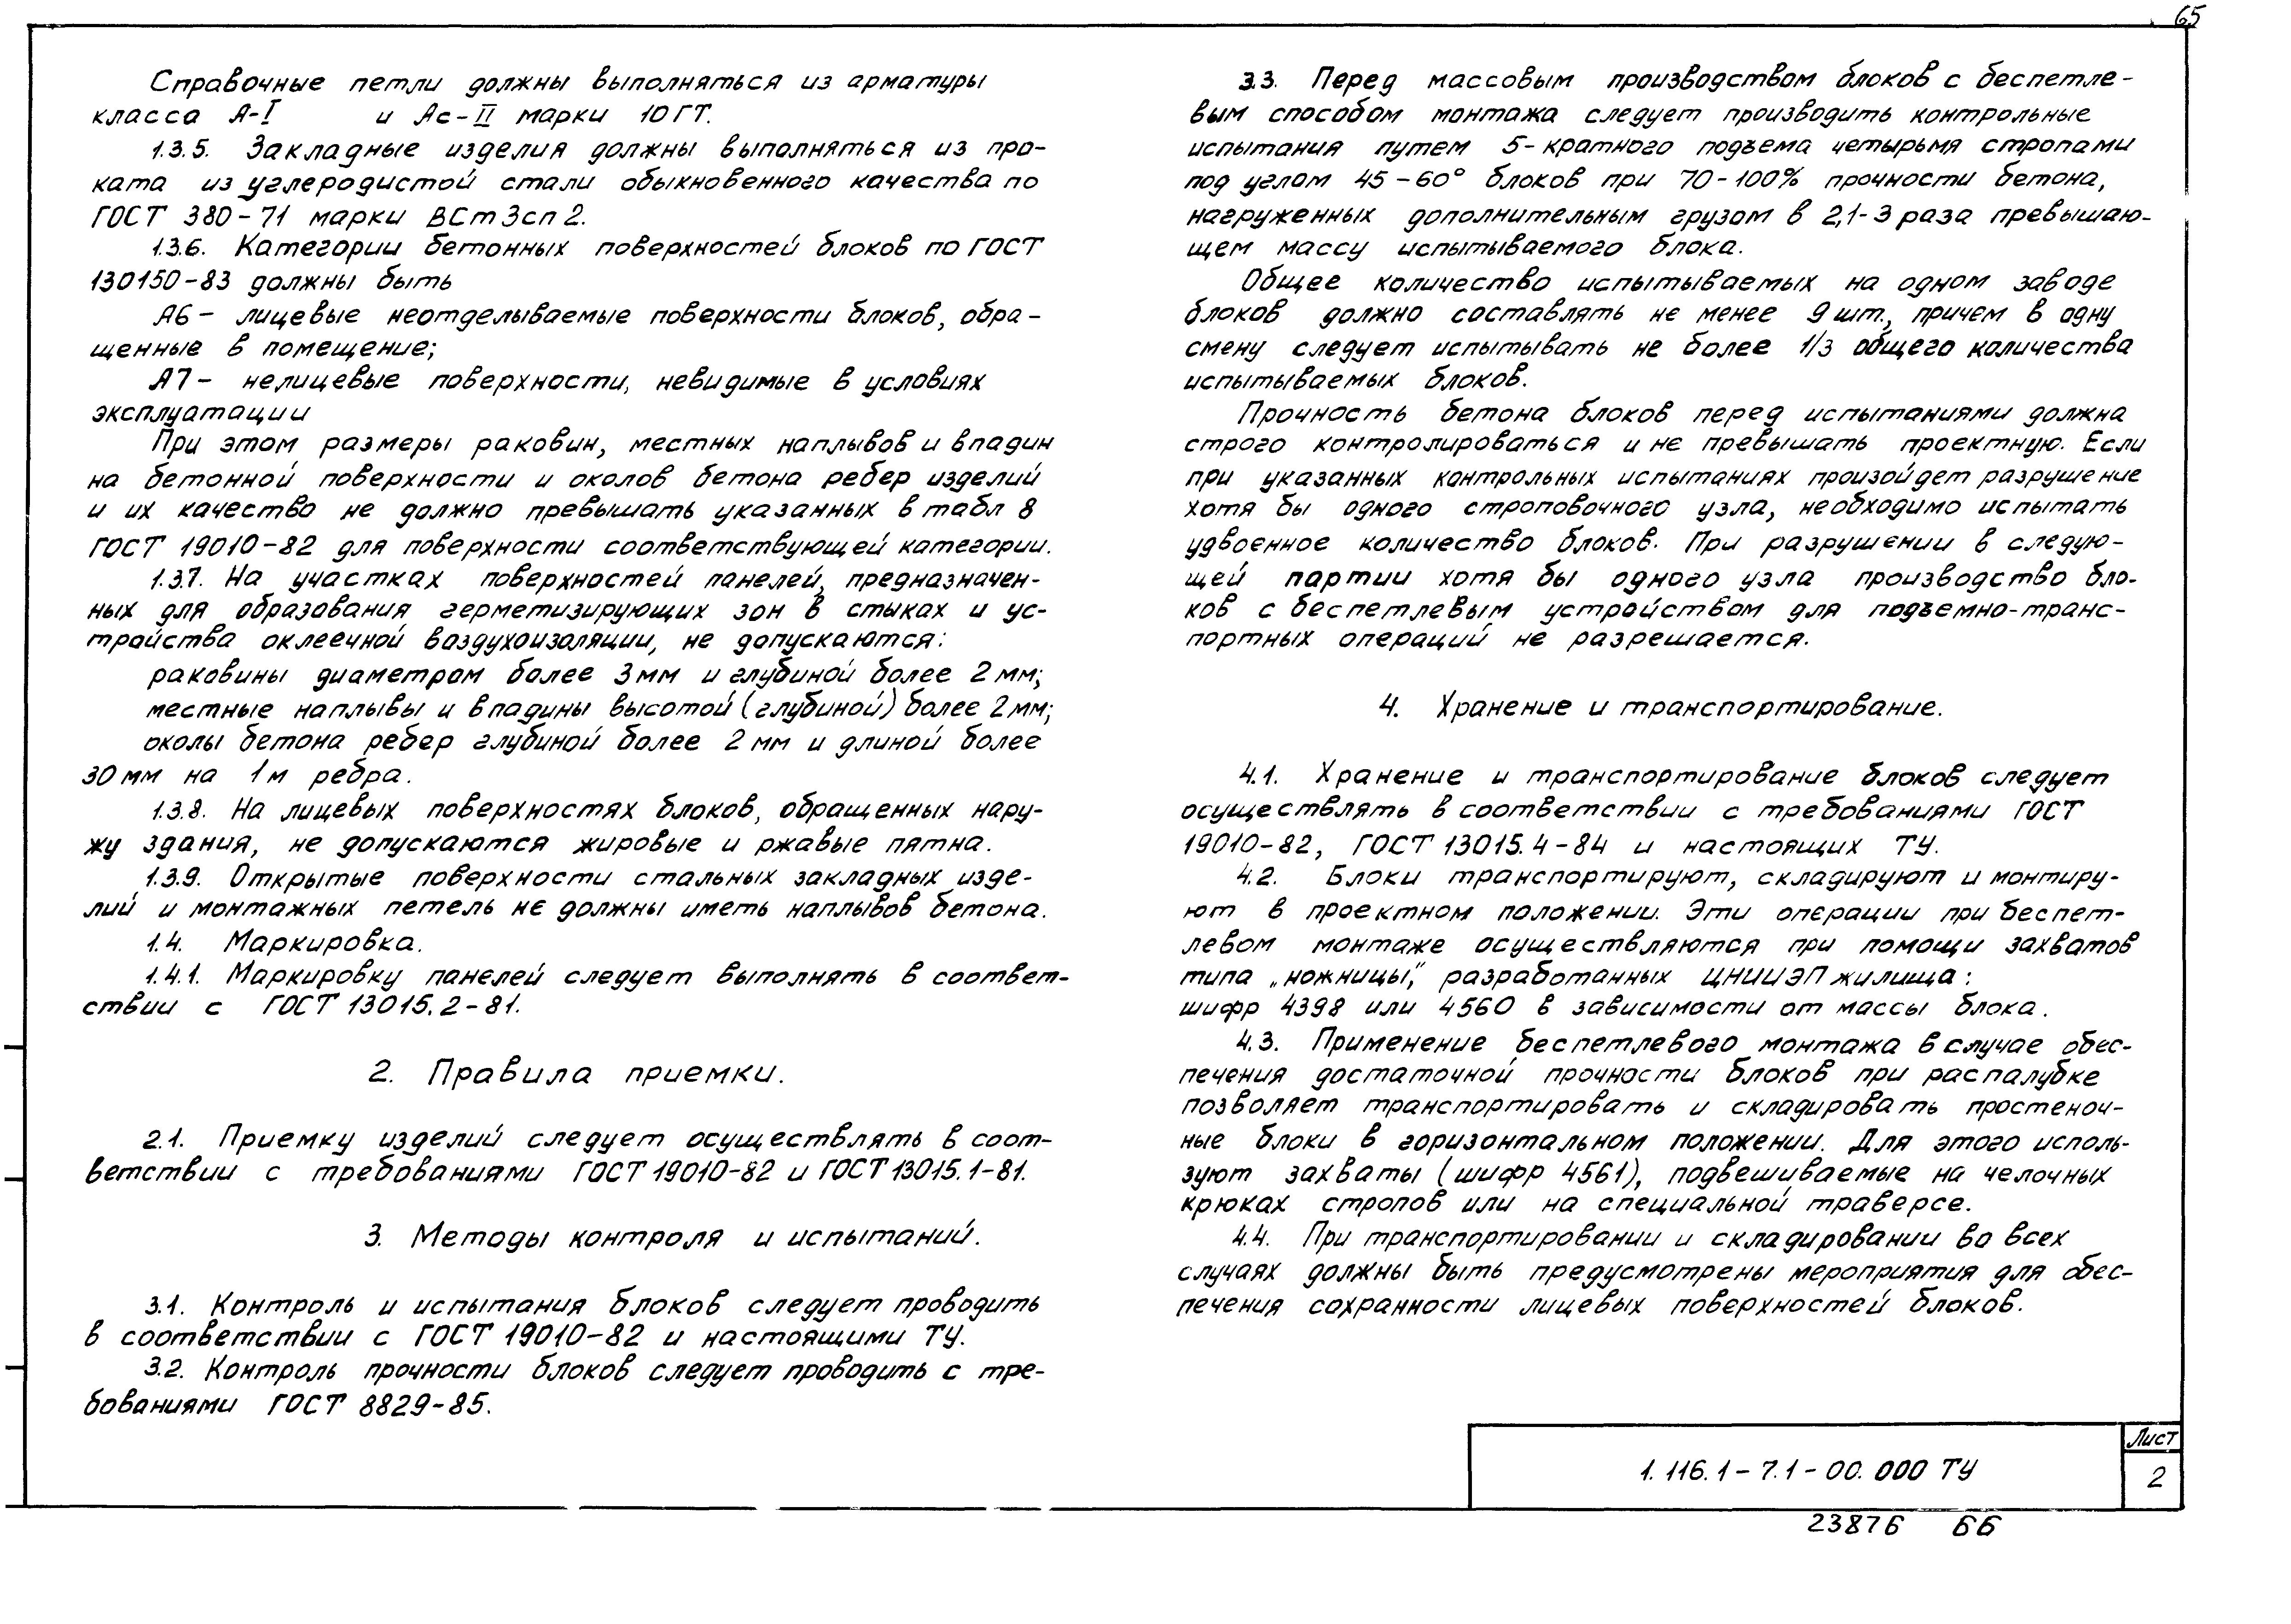 65
Справочные петли должны выполняться из арматуры
класса А-I и Ас-II марки 10ГТ.
1.3.5. Закладные изделия должны выполняться из про-
ката из углеродистой стали обыкновенного качества по
ГОСТ 380-71 марки ВСт3сп2.
1.3.6. Категории бетонных поверхностей блоков по ГОСТ
130150-83 должны быть
А6 - лицевые неотделываемые поверхности блоков, обра-
щенные в помещение;
А7 - нелицевые поверхности, невидимые в условиях
эксплуатации
При этом размеры раковин, местных наплывов и впадин
на бетонной поверхности и околов бетона ребер изделий
и их качество не должно превышать указанных в табл 8
ГОСТ 19010-82 для поверхности соответствующей категории.
1.3.7. На участках поверхностей панелей, предназначен-
ных для образования герметизирующих зон в стыках и ус-
тройства оклеечной воздухоизоляции, не допускаются:
раковины диаметром более 3мм и глубиной более 2мм;
местные наплывы и впадины высотой (глубиной) более 2мм;
околы бетона ребер глубиной более 2мм и длиной более
30мм на 1м ребра.
1.3.8. На лицевых поверхностях блоков, обращенных нару-
жу здания, не допускаются жировые и ржавые пятна.
1.3.9. Открытые поверхности стальных закладных изде-
лий и монтажных петель не должны иметь наплывов бетона.
1.4. Маркировка.
1.4.1. Маркировку панелей следует выполнять в соответ-
ствии с ГОСТ 13015.2-81.
2. Правила приемки.
2.1. Приемку изделий следует осуществлять в соот-
ветствии с требованиями ГОСТ 19010-82 и ГОСТ 13015.1-81.
3. Методы контроля и испытаний.
3.1. Контроль и испытания блоков следует проводить
в соответствии с ГОСТ 19010-82 и настоящими ТУ.
3.2. Контроль прочности блоков следует проводить с тре-
бованиями ГОСТ 8829-85.
3.3. Перед массовым производством блоков с беспетле-
вым способом монтажа следует производить контрольные
испытания путем 5-кратного подъема четырьмя стропами
под углом 45-60° блоков при 70-100% прочности бетона,
нагруженных дополнительным грузом в 2,1-3 раза превышаю-
щем массу испытываемого блока.
Общее количество испытываемых на одном заводе
блоков должно составлять не менее 9шт., причем в одну
смену следует испытывать не более 1/3 общего количества
испытываемых блоков.
Прочность бетона блоков перед испытаниями должна
строго контролироваться и не превышать проектную. Если
при указанных контрольных испытаниях произойдет разрушение
хотя бы одного строповочного узла, необходимо испытать
удвоенное количество блоков. При разрушении в следую-
щей партии хотя бы одного узла производство бло-
ков с беспетлевым устройством для подъемно-транс-
портных операций не разрешается.
4. Хранение и транспортирование.
4.1. Хранение и транспортирование блоков следует
осуществлять в соответствии с требованиями ГОСТ
19010-82, ГОСТ 13015.4-84 и настоящих ТУ.
4.2. Блоки транспортируют, складируют и монтиру-
ют в проектном положении. Эти операции при беспет-
левом монтаже осуществляются при помощи захватов
типа „ножницы“, разработанных ЦНИИЭП жилища:
шифр 4398 или 4560 в зависимости от массы блока.
4.3. Применение беспетлевого монтажа в случае обес-
печения достаточной прочности блоков при распалубке
позволяет транспортировать и складировать простеноч-
ные блоки в горизонтальном положении. Для этого исполь-
зуют захваты (шифр 4561), подвешиваемые на челочных
крюках стропов или на специальной траверсе.
4.4. При транспортировании и складировании во всех
случаях должны быть предусмотрены мероприятия для обес-
печения сохранности лицевых поверхностей блоков.
1.116.1-7.1-00.000 ТУ
Лист
2
23876 66